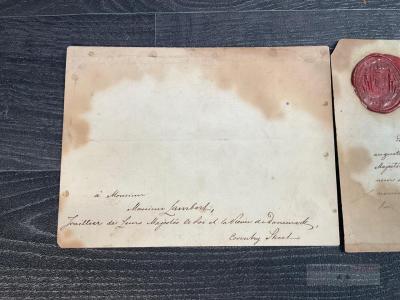 à Monsieur
Monsieur Lambert,
Jouillier de Leurs Majestés le Roi et la Reine de Danemarck,
Coventry Street
auguste
Majesté